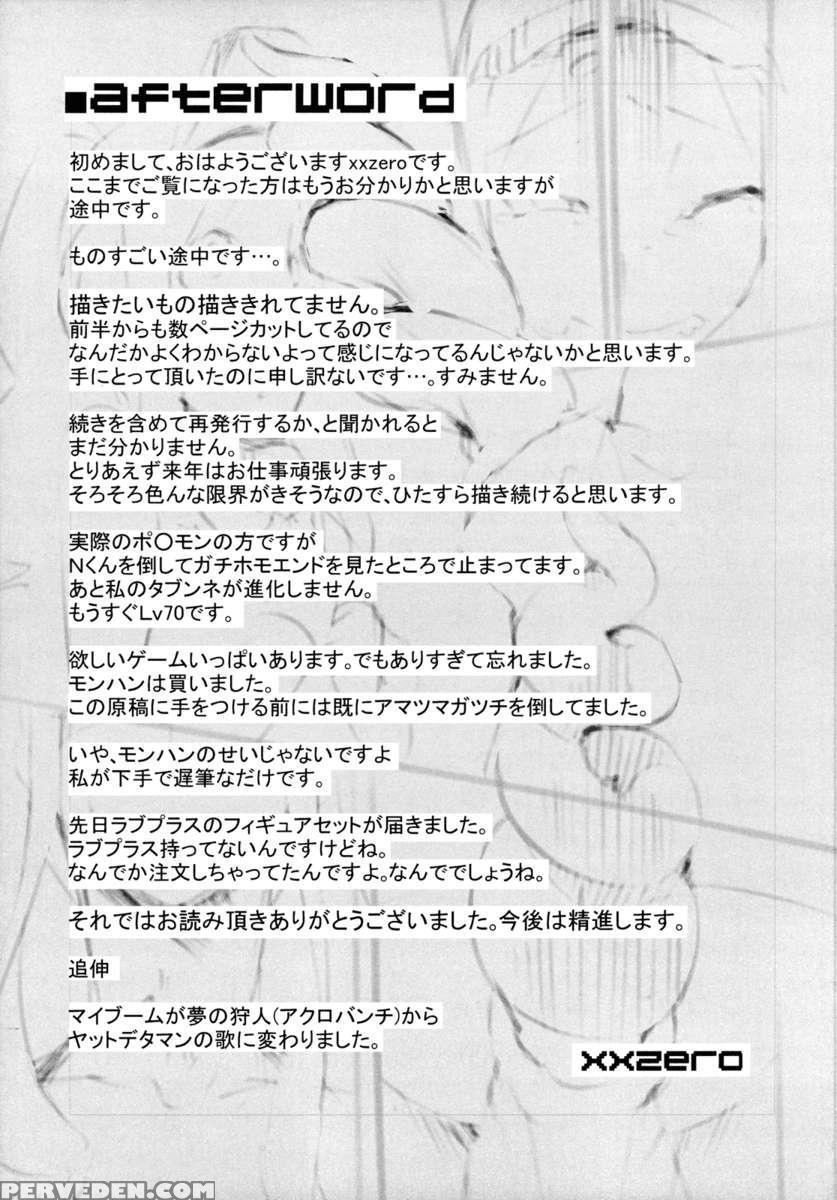 ■afterword
初めまして、おはようございますxxzeroです。
ここまでご覧になった方はもうお分かりかと思いますが
途中です。
ものすごい途中です…。
描きたいもの描ききれてません。
前半からも数ページカットしてるので
なんだかよくわからないよって感じになってるんじゃないかと思います。
手にとって頂いたのに申し訳ないです…。すみません。
続きを含めて再発行するか、と聞かれると
まだ分かりません。
とりあえず来年はお仕事頑張ります。
そろそろ色んな限界がきそうなので、ひたすら描き続けると思います。
実際のポ〇モンの方ですが
Nくんを倒してガチホモエンドを見たところで止まってます。
あと私のタブンネが進化しません。
もうすぐLv70です。
欲しいゲームいっぱいあります。でもありすぎて忘れました。
モンハンは買いました。
この原稿に手をつける前には既にアマツマガツチを倒してました。
いや、モンハンのせいじゃないですよ
私が下手で遅筆なだけです。
先日ラブプラスのフィギュアセットが届きました。
ラブプラス持ってないんですけどね。
なんでか注文しちゃってたんですよ。なんででしょうね。
それではお読み頂きありがとうございました。今後は精進します。
追伸
マイブームが夢の狩人(アクロバンチ)から
ヤットデタマンの歌に変わりました。
xxzero
PERVEDEN.COM